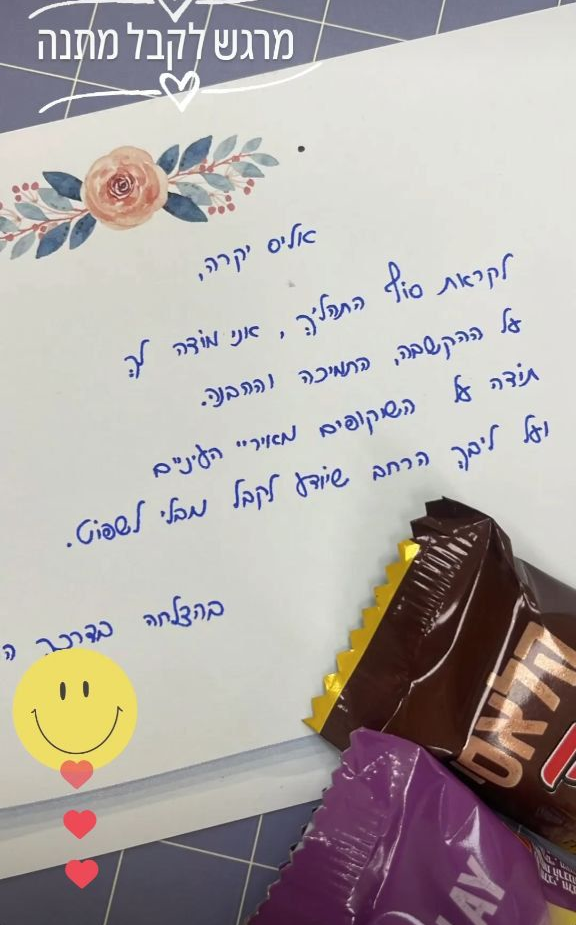 מרגש לקבל מתנה
אליס יקרה,
לקראת סוף התהליך, אני מודה לך
על ההקשבה, התמיכה וההבנה.
תודה על השיקופים מאיריי העיניים
ועל ליבך הרחב שיודע לקבל מבלי לשפוט.
בהצלחה בדרכך
LAY